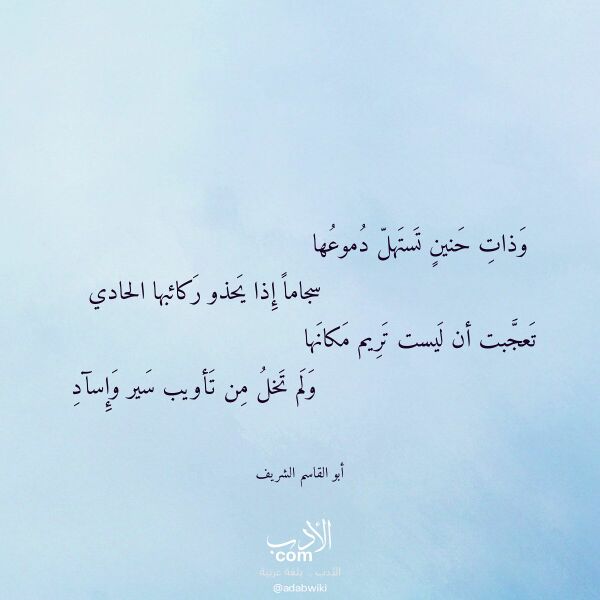 وَذاتِ حَنينٍ تَستَهلّ دُموعُها
سجاماً إِذا يَحذو رَكائبها الحادي
تَعجَّبت أن لَيست تَرِيم مَكانَها
وَلَم تَخلُ مِن تَأويب سَير وَإِسآدِ
أبو القاسم الشريف
الأدب
com
الأدب .. بلغة عربية
@adabwiki